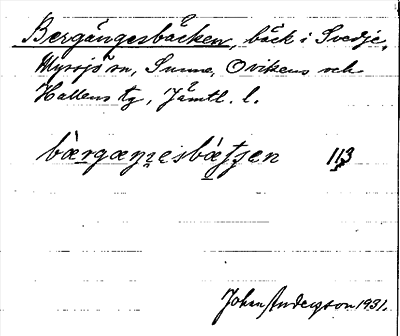 Bergångesbäcken, bäck i Svedje,
Myssjö sn, Sunne, Ovikens och
Hallens tg, Jämtl. l.
bærgæŋesbætsen 113
Johan Anderson 1931.